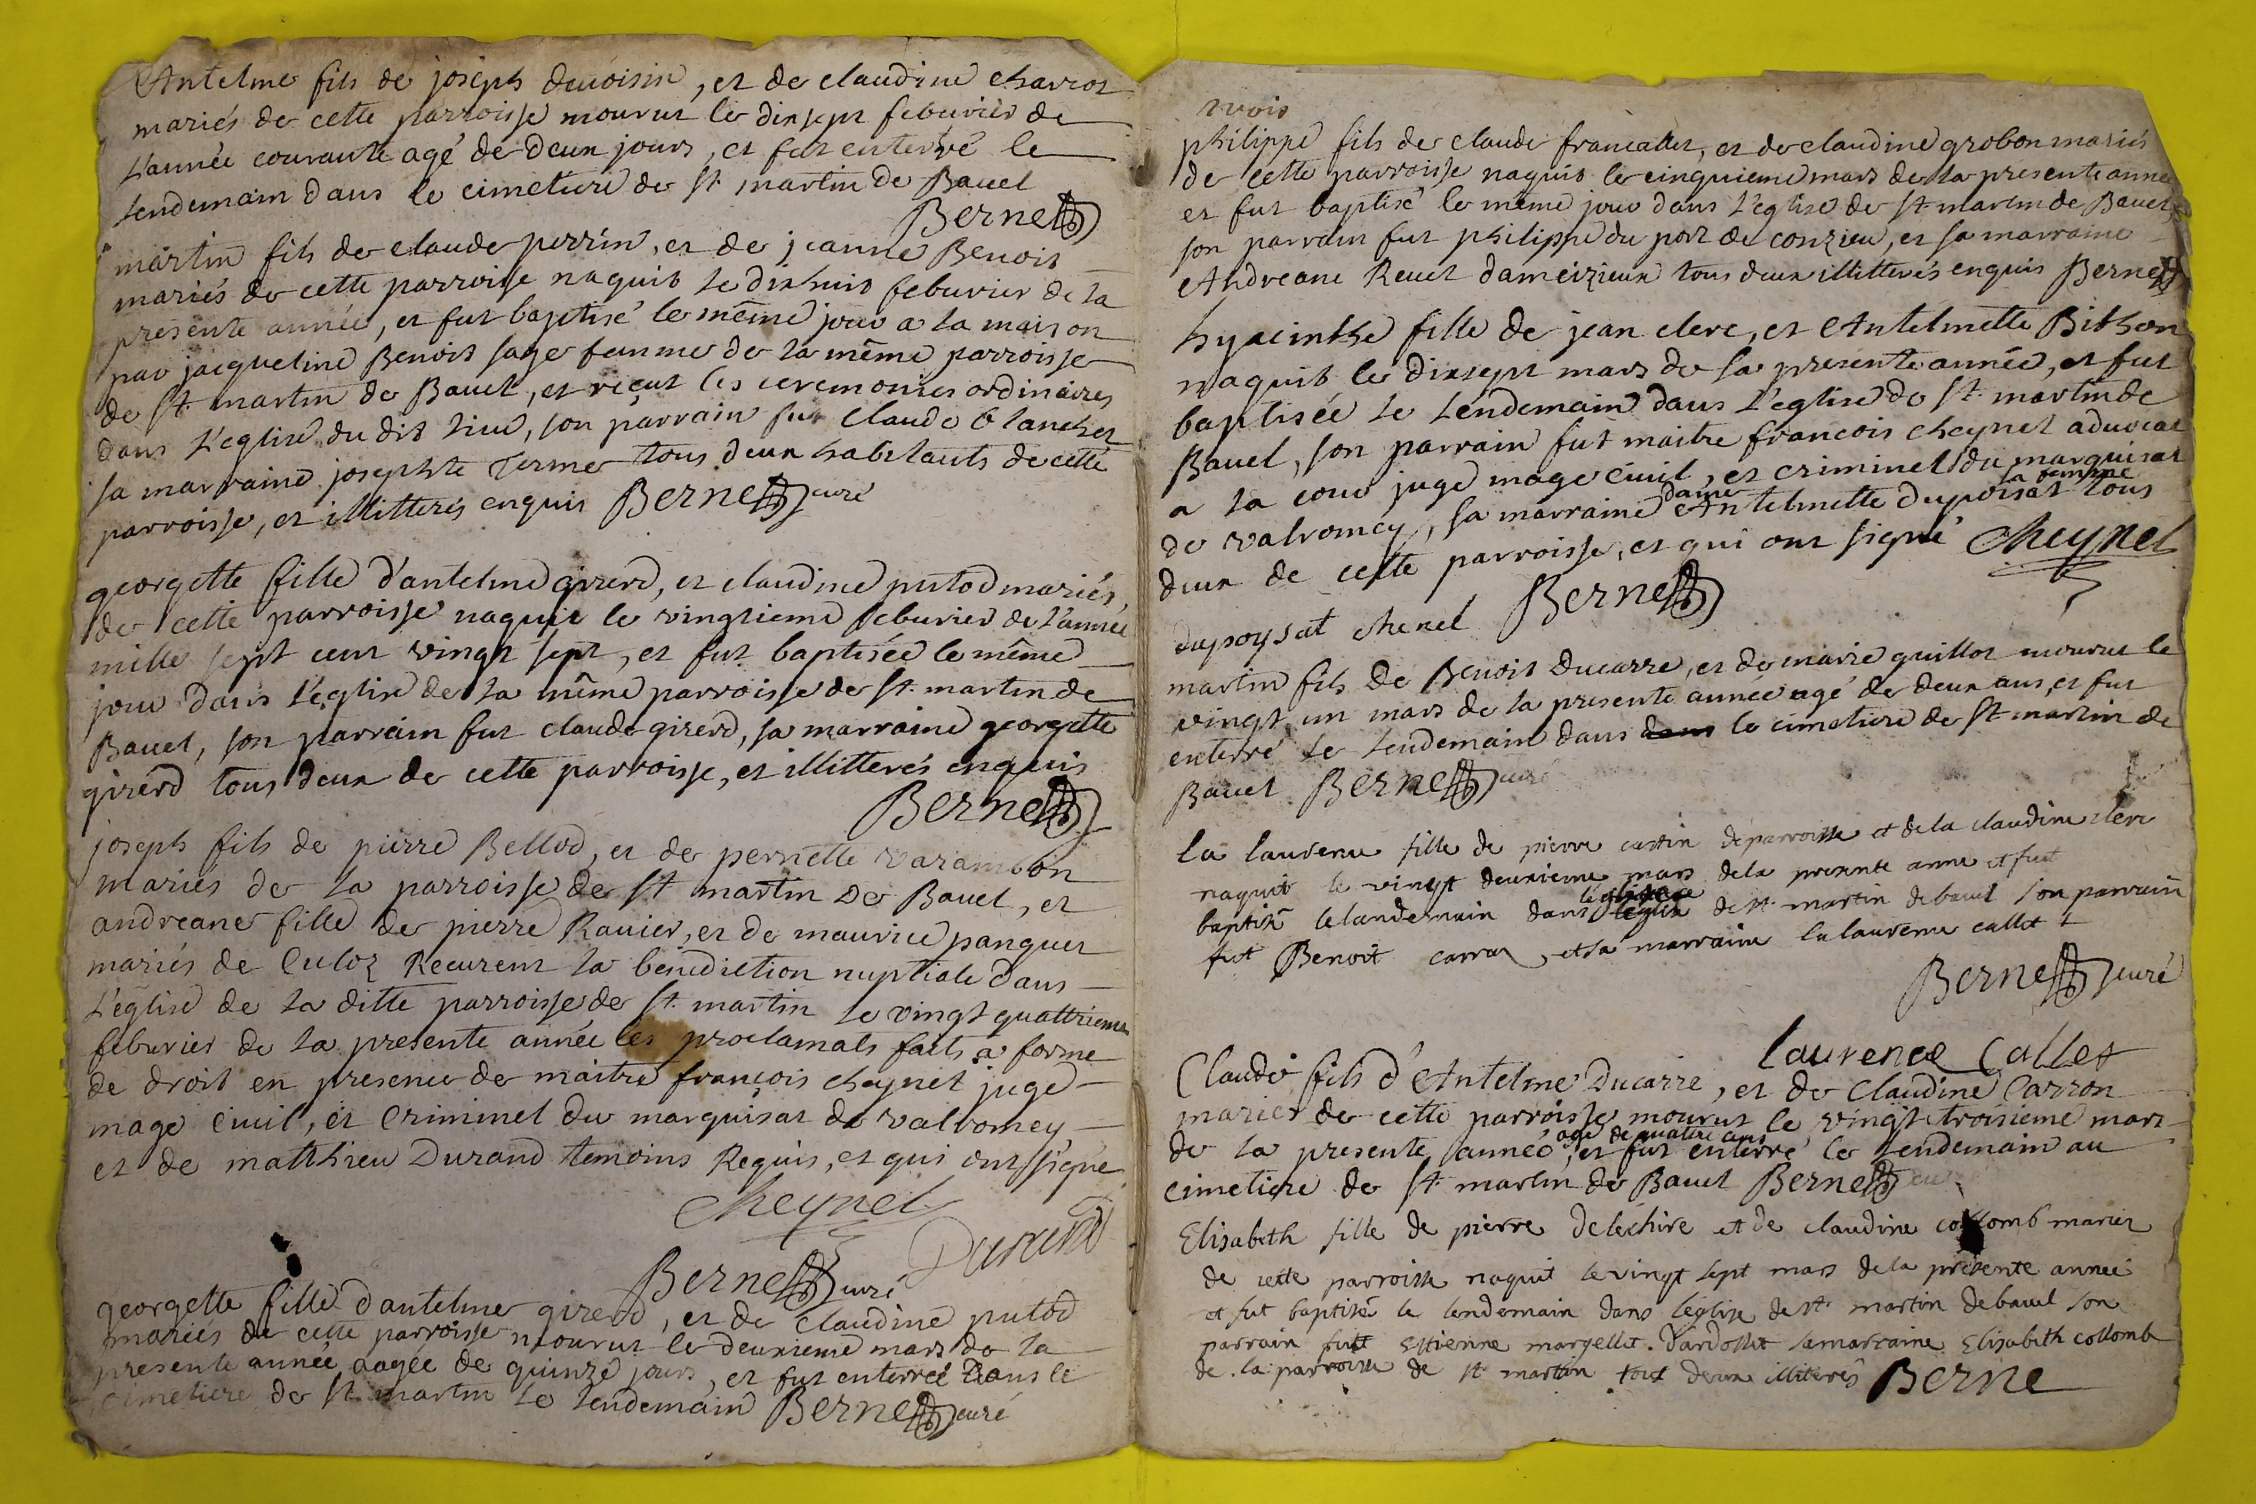 Antelme fils de joseph devoisin, et de claudine charvot
mariés de cette parroisse mourut le dixsept feburier de
L'année courante agé de deux jours, et fut enterré le
Lendemain dans le cimetiere de St martin de Bavel
Berne
martin fils de claude perrin, et de jeanne Benoit
mariés de cette parroisse naquit le dixhuit feburier de la
presente année, et fut baptisé le même jour a la maison
par jacqueline Benoit sage femme de la même parroisse
de St martin de Bavel, et reçut les ceremonies ordinaires
dans L'eglise du dit lieu, son parrain fut Claude blanchet
sa marraine josephte Terme tous deux habitants de cette
parroisse, et illitterés enquis Berne curé
georgette fille d'antelme girerd, et claudine putod mariés
de cette parroisse naquit le vingtieme feburier de L'année
mille sept cent vingt sept, et fut baptisée le même
jour dans L'eglise de la même parroisse de St martin de
Bavel, son parrain fut claude girerd, sa marraine georgette
girerd tous deux de cette parroisse, et illitterés enquis
Berne
joseph fils de pierre Bellod, et de pernette varambon
mariés de la parroisse de St martin de Bavel, et
andreane fille de pierre Ravier, et de maurice panguet
mariés de Culoz Recurent la benediction nuptiale dans
L'eglise de la ditte parroisse de St martin le vingt quattrieme
feburier de la presente année les proclamats faits a forme
de droit en presence de maitre françois cheynet juge
mage civil, et criminel du marquisat de valromey
et de matthieu Durand temoins Requis, et qui ont signé
cheynet
Durand
Berne curé
georgette fille d'antelme girerd, et de claudine putod
mariés de cette parroisse mourut le deuxieme mars de la
presente année aagée de quinze jours, et fut enterrée dans le
cimetiere de St martin Le Lendemain Berne curé
philippe fils de claude francallet, et de claudine grobon mariés
de cette parroisse naquit le cinquieme mars de la presente année
et fut baptisé le même jour dans L'eglise de St martin de Bavel,
son parrain fut philippe du port de conzieu, et sa marraine
Andreane Revet dameizieux tous deux illitterés enquis Berne
hyacinthe fille de jean clerc, et Antelmette Bithon
naquit le dixsept mars de la presente année, et fut
baptisée le lendemain dans L'eglise de St martin de
Bavel, son parrain fut maitre francois cheynet aduocat
a la cour juge mage civil, et criminel du marquisat
de valromey, sa marraine dame Antelmette dupoisat sa femme tous
deux de cette parroisse, et qui ont signé cheynet
dupoysat chenel Berne
martin fils de Benoit Ducarre, et de marie guillot mourut le
vingt un mars de la presente année agé de deux ans, et fut
enterré Le Lendemain dans dans le cimetiere de St martin de
Bavel Berne curé
la laurence fille de pierre de parroisse et de la claudine clerc
naquit le vingt deuxieme mars de la presente anne et fuet
baptisé le landemain dans leglise de st martin de bavel son parrain
fut Benoit carra, et sa marraine la laurence callet
Berne curé
Laurence Callet
Claude fils d'Antelme Ducarre, et de Claudine Carron
mariés de cette parroisse mourut le vingt troisieme mars
de la presente année, agé de quatre ans et fut enterré le Lendemain au
cimetiere de St martin de Bavel Berne
Elisabeth fille de pierre delechire et de claudine collomb mariez
de cette parroisse naquit le vingt sept mars de la présente année
et fut baptisée le lendemain dans leglise de st martin de bavel son
parrain fut Estienne margellet . Dardollet la marraine Elisabeth collomb
de la parroisse de st martin tout deux illiterés Berne